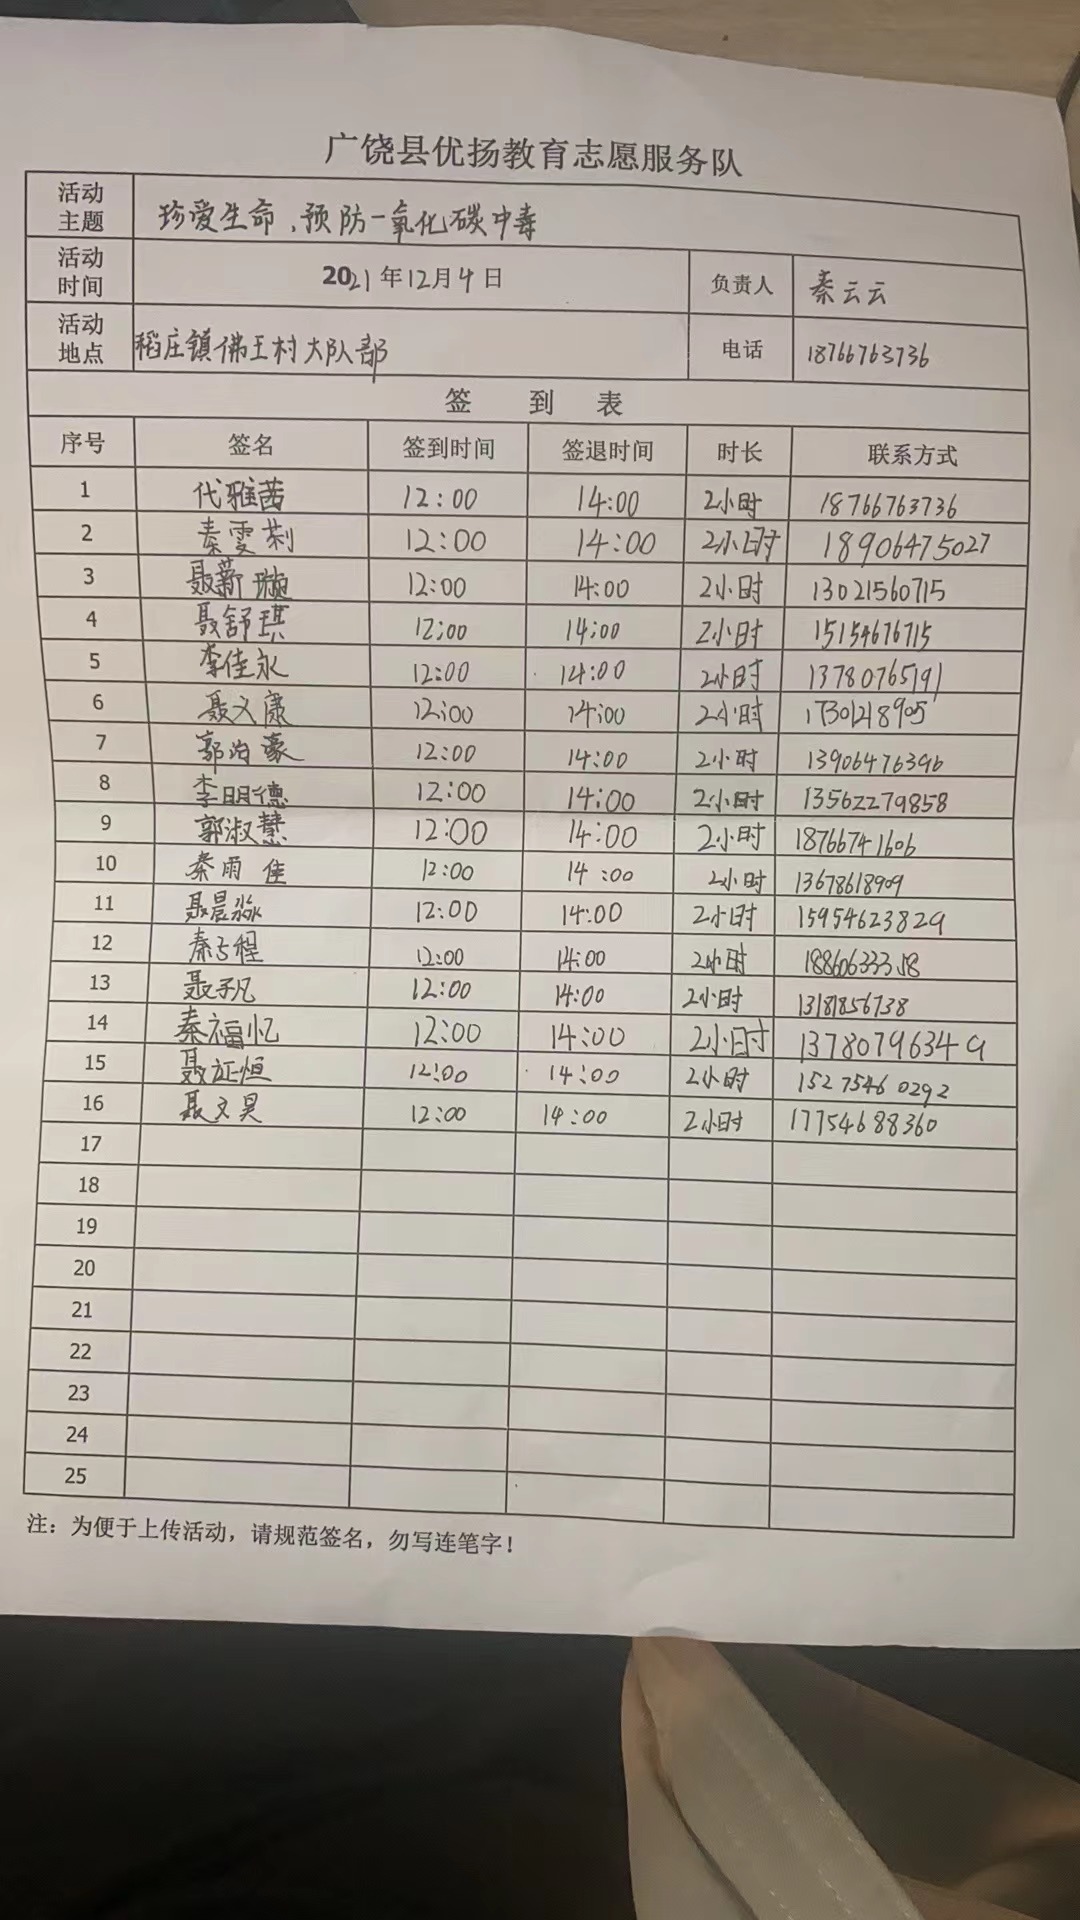 广饶县优扬教育志愿服务队
活动主题 珍爱生命、预防一氧化碳中毒
活动时间 2021年12月4日 负责人 秦云云
活动地点 稻庄镇佛王村大队部 电话 18766763736
签 到 表
序号 签名 签到时间 签退时间 时长 联系方式
1 代雅茜 12:00 14:00 2小时 18766763736
2 秦雯莉 12:00 14:00 2小时 18906475027
3 聂薪璇 12:00 14:00 2小时 13021560715
4 聂舒琪 12:00 14:00 2小时 15154676715
5 李佳永 12:00 14:00 2小时 13780765191
6 聂义康 12:00 14:00 2小时 17301218905
7 郭洺豪 12:00 14:00 2小时 13906476396
8 李明德 12:00 14:00 2小时 13562279858
9 郭淑慧 12:00 14:00 2小时 18766741606
10 秦雨佳 12:00 14:00 2小时 13678618909
11 聂晨淼 12:00 14:00 2小时 15954623829
12 秦 程 12:00 14:00 2小时
13 聂子凡 12:00 14:00 2小时 13181856738
14 秦福忆 12:00 14:00 2小时 13780796349
15 聂证恒 12:00 14:00 2小时 15275460292
16 聂文昊 12:00 14:00 2小时 17754688360
17
18
19
20
21
22
23
24
25
注：为便于上传活动，请规范签名，勿写连笔字！